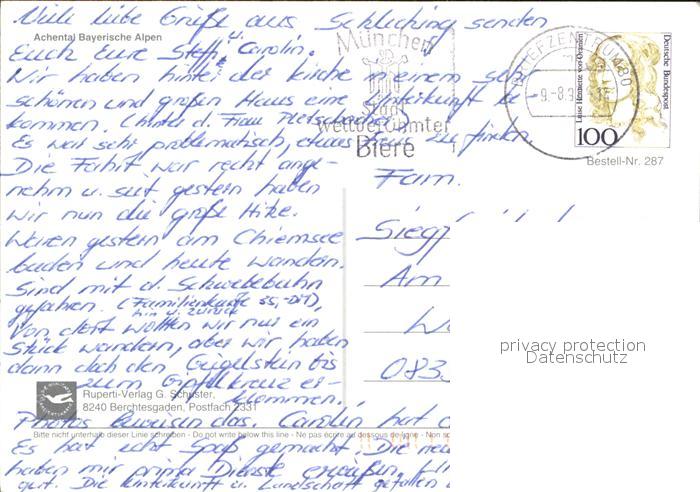 Viele liebe Grüße aus Schleching senden
Achental Bayerische Alpen
Euch Eure Steffi u. Carolin.
Wir haben hinter der Kirche in einem sehr
schönen und großen Haus eine Unterkunft be-
kommen (hinter d. Frau
Es war sehr problematisch, etwas zu finden.
Die Fahrt war recht ange-
nehm u. seit gestern haben
wir nun die große Hitze.
Waren gestern am Chiemsee
baden und heute wandern.
Sind mit d. Schwebebahn
gefahren. (Familienkarte 55,-DM),
hin u. zurück
Von dort wollten wir nur ein
Stück wandern, aber wir haben
dann doch den Geigelstein bis
zum Gipfelkreuz er-
klommen.
Photos beweisen das. Carolin hat
Es hat echt Spaß gemacht. Die neu
haben mir prima Dienste erwiesen.
gut. Die Unterkunft u. Landschaft gefallen
München
Stadt
weltberühmter
Biere
BRIEFZENTRUM 80
-9.-8.9
Luise Henriette von Oranien
Deutsche Bundespost
100
Bestell-Nr. 287
Fam.
Siegf
Am
083
privacy protection
Datenschutz
Ruperti-Verlag G. Schuster,
8240 Berchtesgaden, Postfach 2331
Bitte nicht unterhalb dieser Linie schreiben - Do not write below this line - Ne pas écrire au dessous de ligne - Non sc